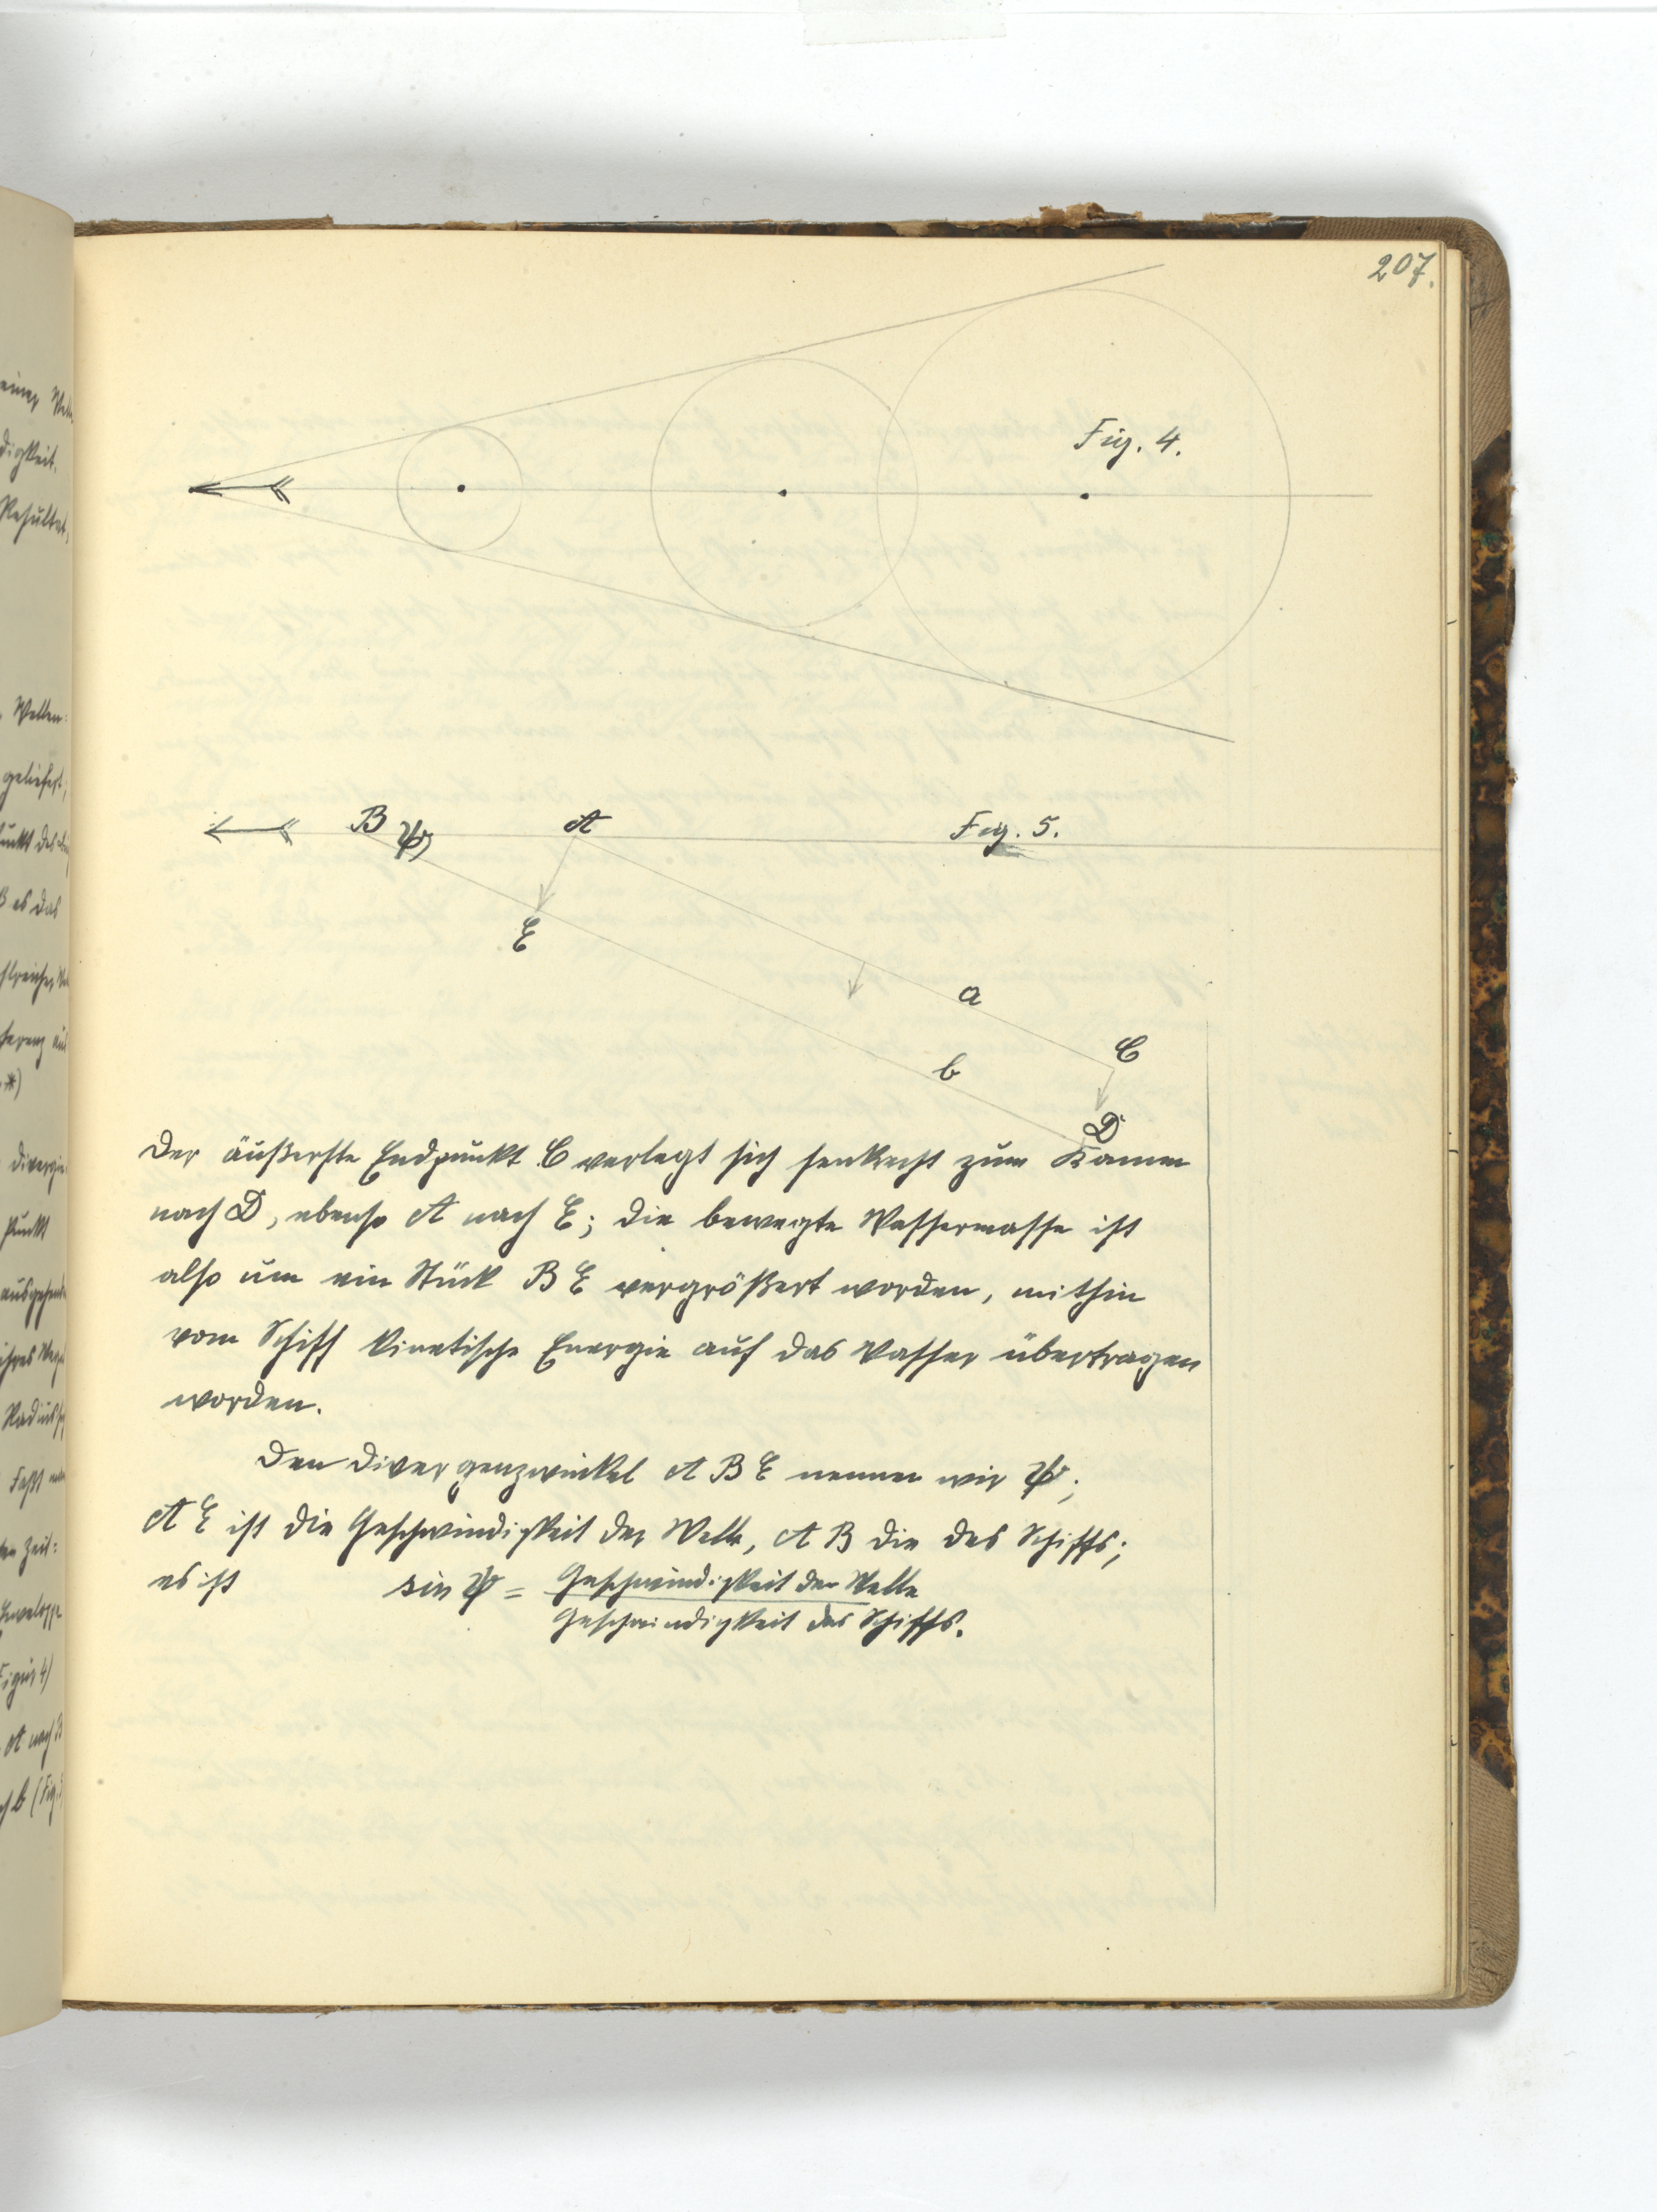 207.
Fig. 4.
B ψ A Fig. 5.
E
a
C
b
D
Der äußerste Endpunkt C verlegt sich senkrecht zum Kamm
nach D, ebenso A nach E; die bewegte Wassermasse ist
also um ein Stück B E vergrößert worden, mithin
vom Schiff kinetische Energie auf das Wasser übertragen
worden.
Den Divergenzwinkel A B E nennen wir ψ;
A E ist die Geschwindigkeit der Welle, A B die des Schiffs;
es ist sin ψ = Geschwindigkeit der Welle
Geschwindigkeit des Schiffs.
digkeit.
Resultat,
Wellen-
geliefert,
es das
*)
Punkt
Zeit:
Figur 4)
A nach B
b (Fig.